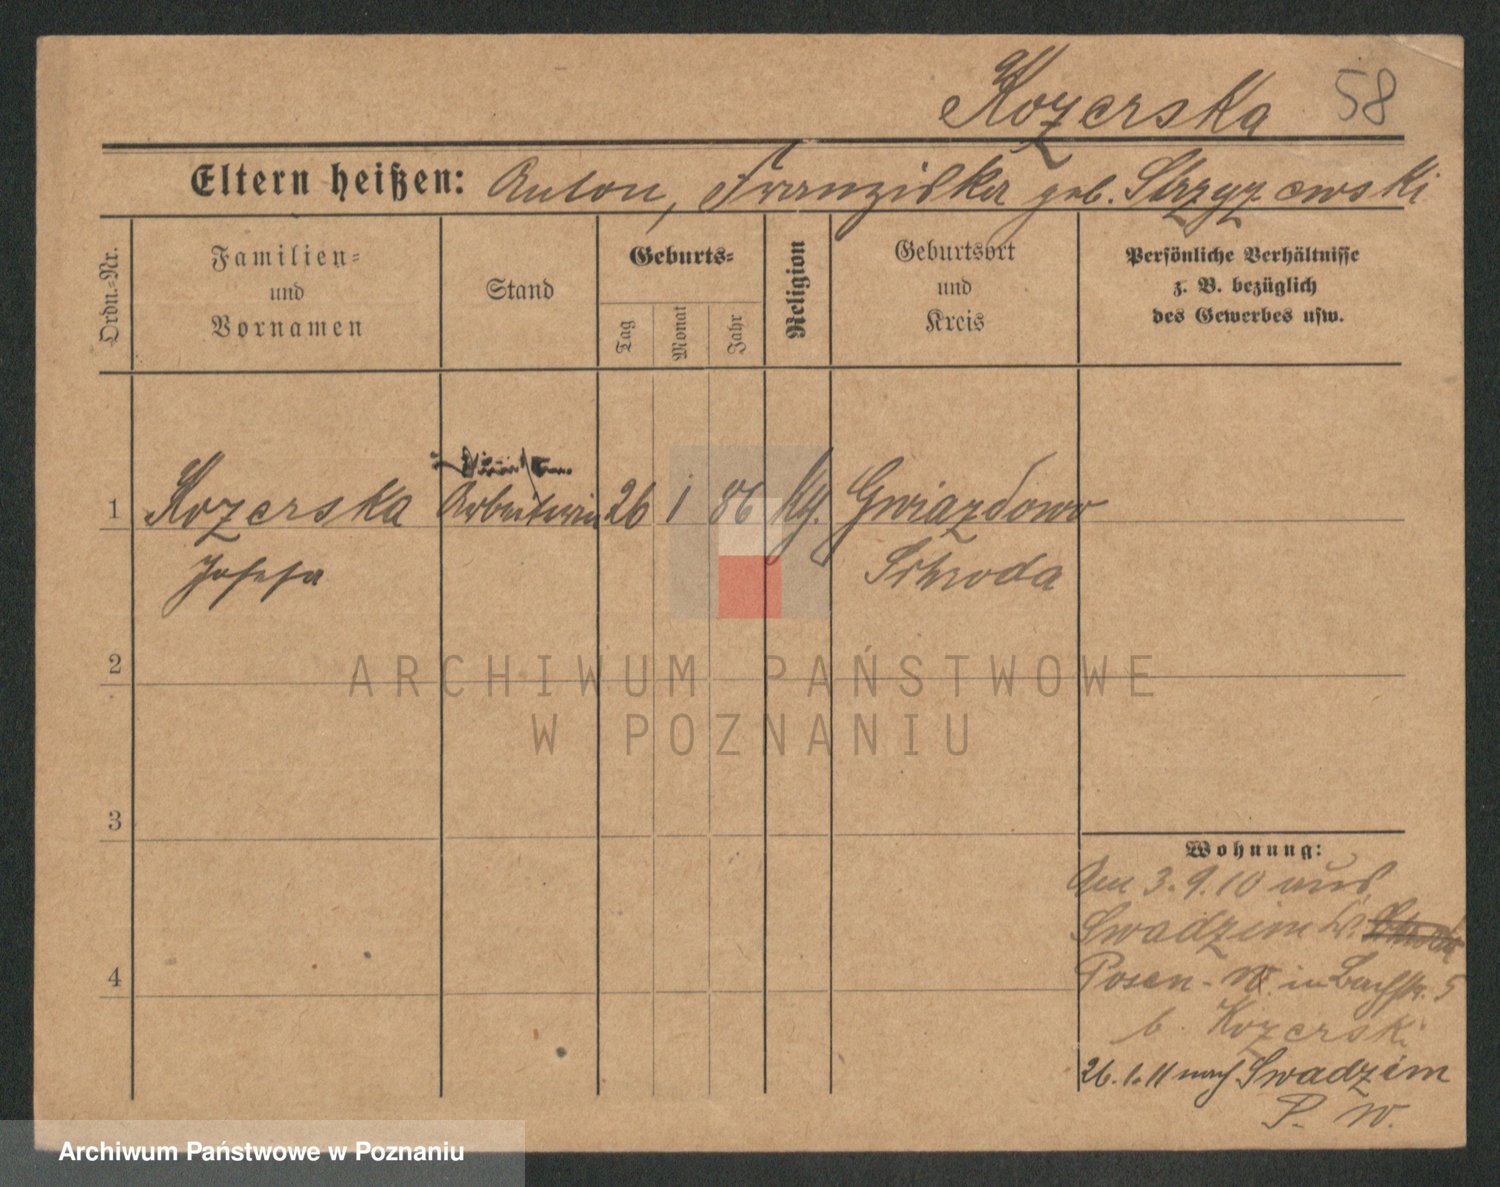 Kozerska 58
Eltern heißen: Anton, Franziska geb. Strzyzewski
Ordn.-Nr.
Familien- und Vornamen
Stand
Geburts-
Tag
Monat
Jahr
Religion
Geburtsort und Kreis
Persönliche Verhältnisse
z. B. bezüglich
des Gewerbes usw.
1 Kozerska Arbeiterin 26 1 86 kth. Gwiazdowo
Josefa Schroda
2
ARCHIWUM PAŃSTWOWE
W POZNANIU
3
Wohnung:
Am 3.9.10 aus
Swadzim Kr.
4
Posen-W. in Bachstr. 5
b. Kozerski
26.1.11 nach Swadzim
P. W.
Archiwum Państwowe w Poznaniu